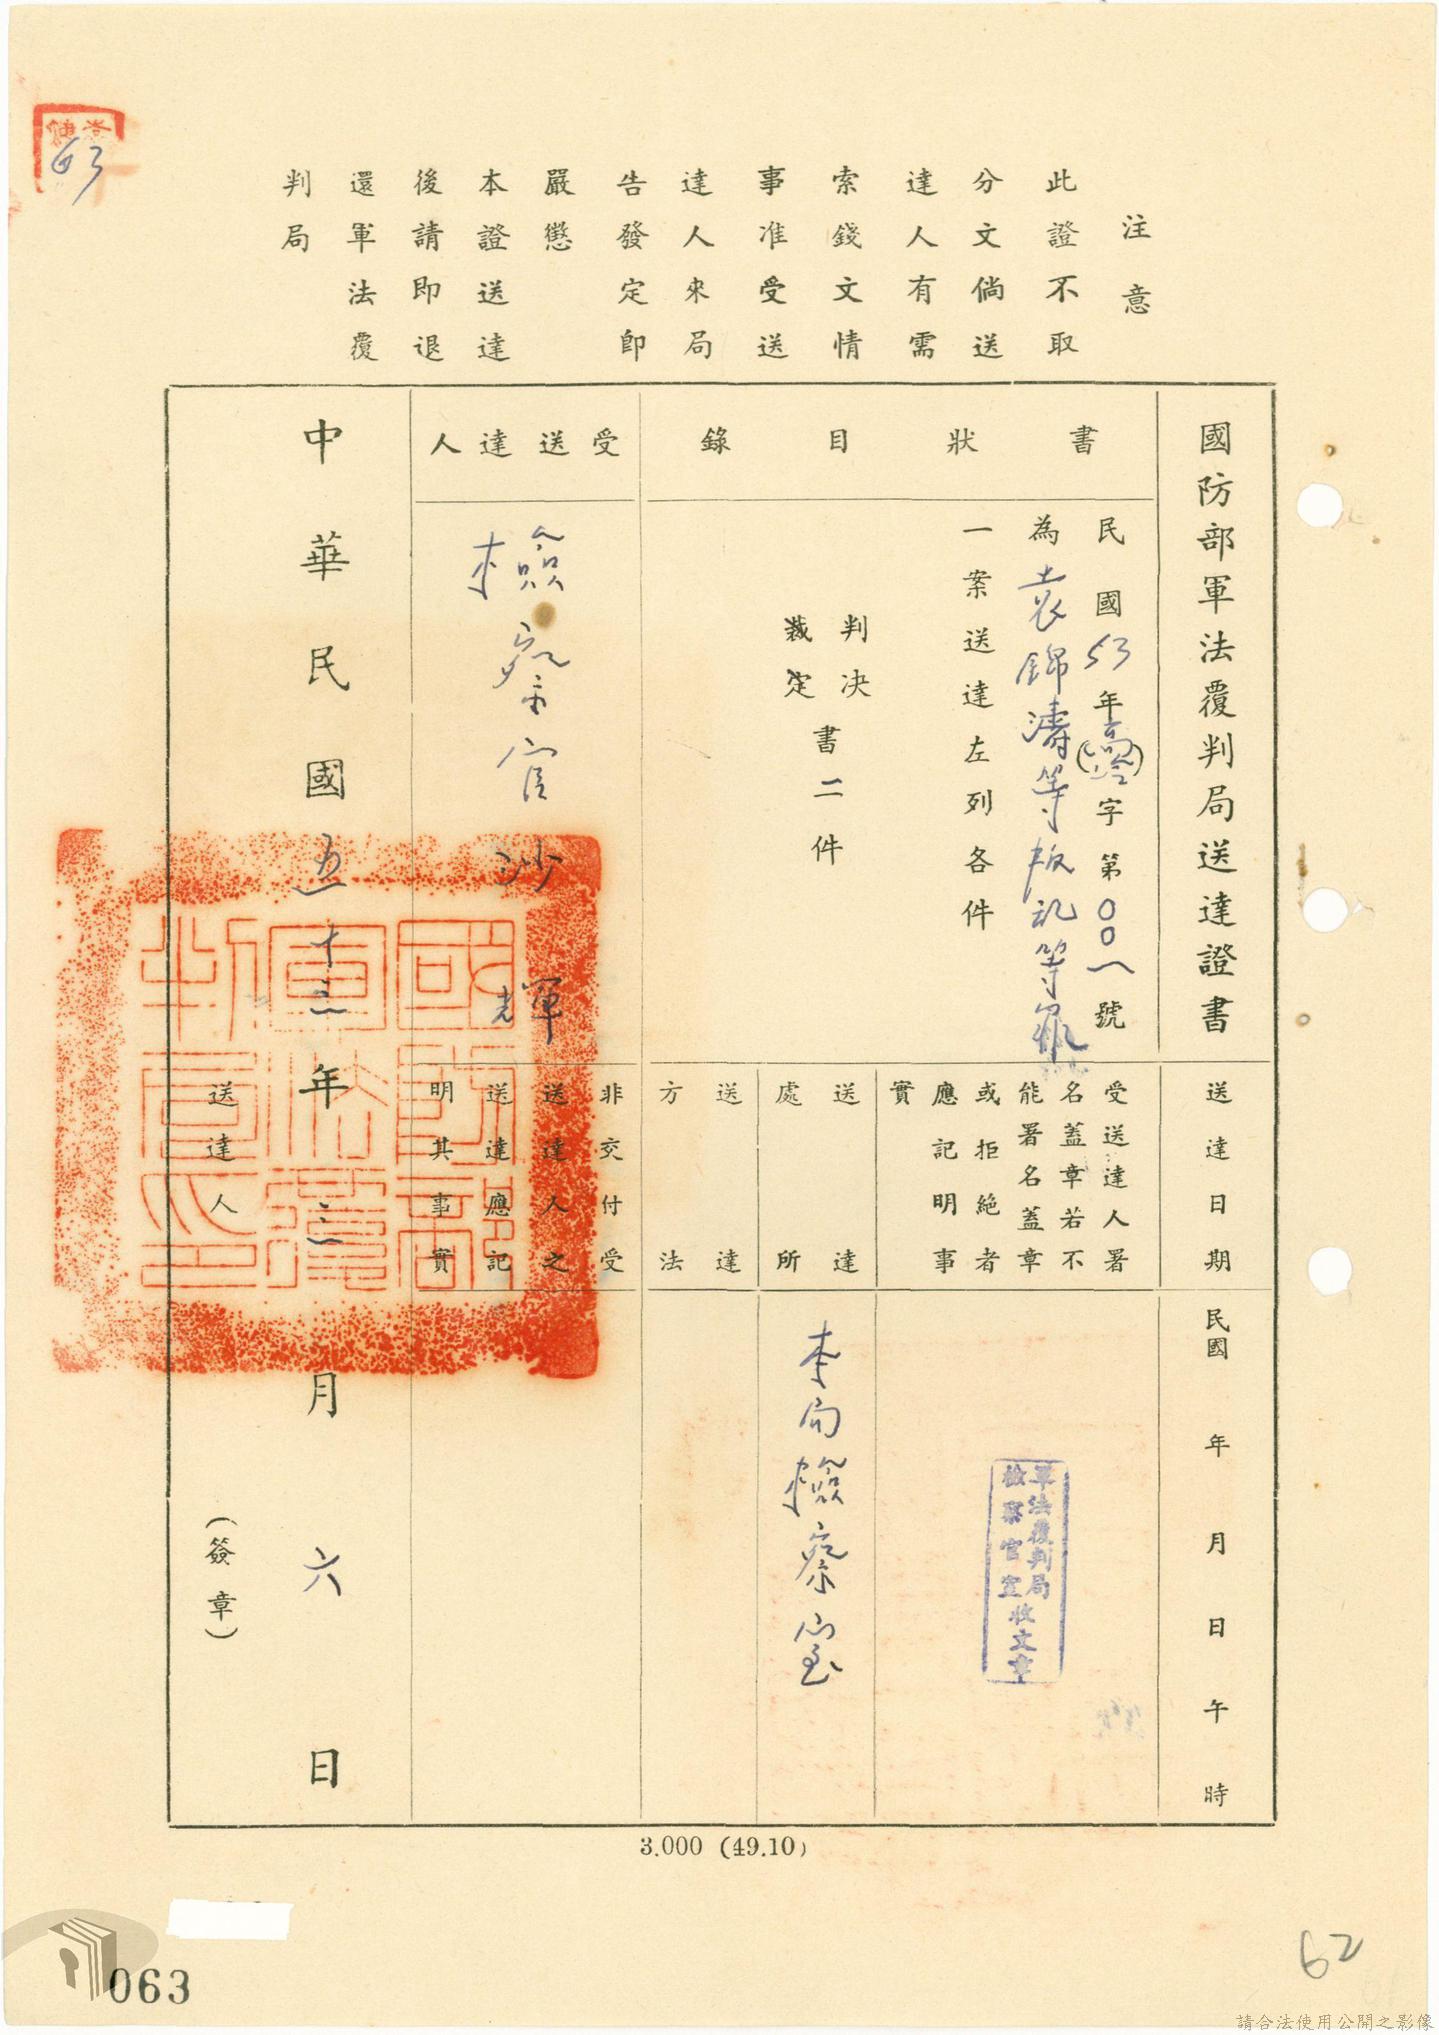 63
注意
此證不取
分文倘送
達人有需
索錢文情
事准受送
達人來局
告發定即
嚴懲
本證送達
後請即退
還軍法覆
判局
國防部軍法覆判局送達證書
書狀目錄
民國53年(高)字第001號
為袁錦濤等叛亂等罪
一案送達左列各件
判決
裁定
書二件
受送達人
檢察官
沙輝
送達日期
民國年月日午時
受送達人署
名蓋章若不
能署名蓋章
或拒絕者
應記明事
實
軍法覆判局
檢察官室收文章
送達
處所
本局檢察室
送達
方法
非交付受
送達人之
送達應記
明其事實
中華民國五十三年二月六日
送達人
(簽章)
國防部軍法覆判局印
3.000 (49.10)
063
62
請合法使用公開之影像